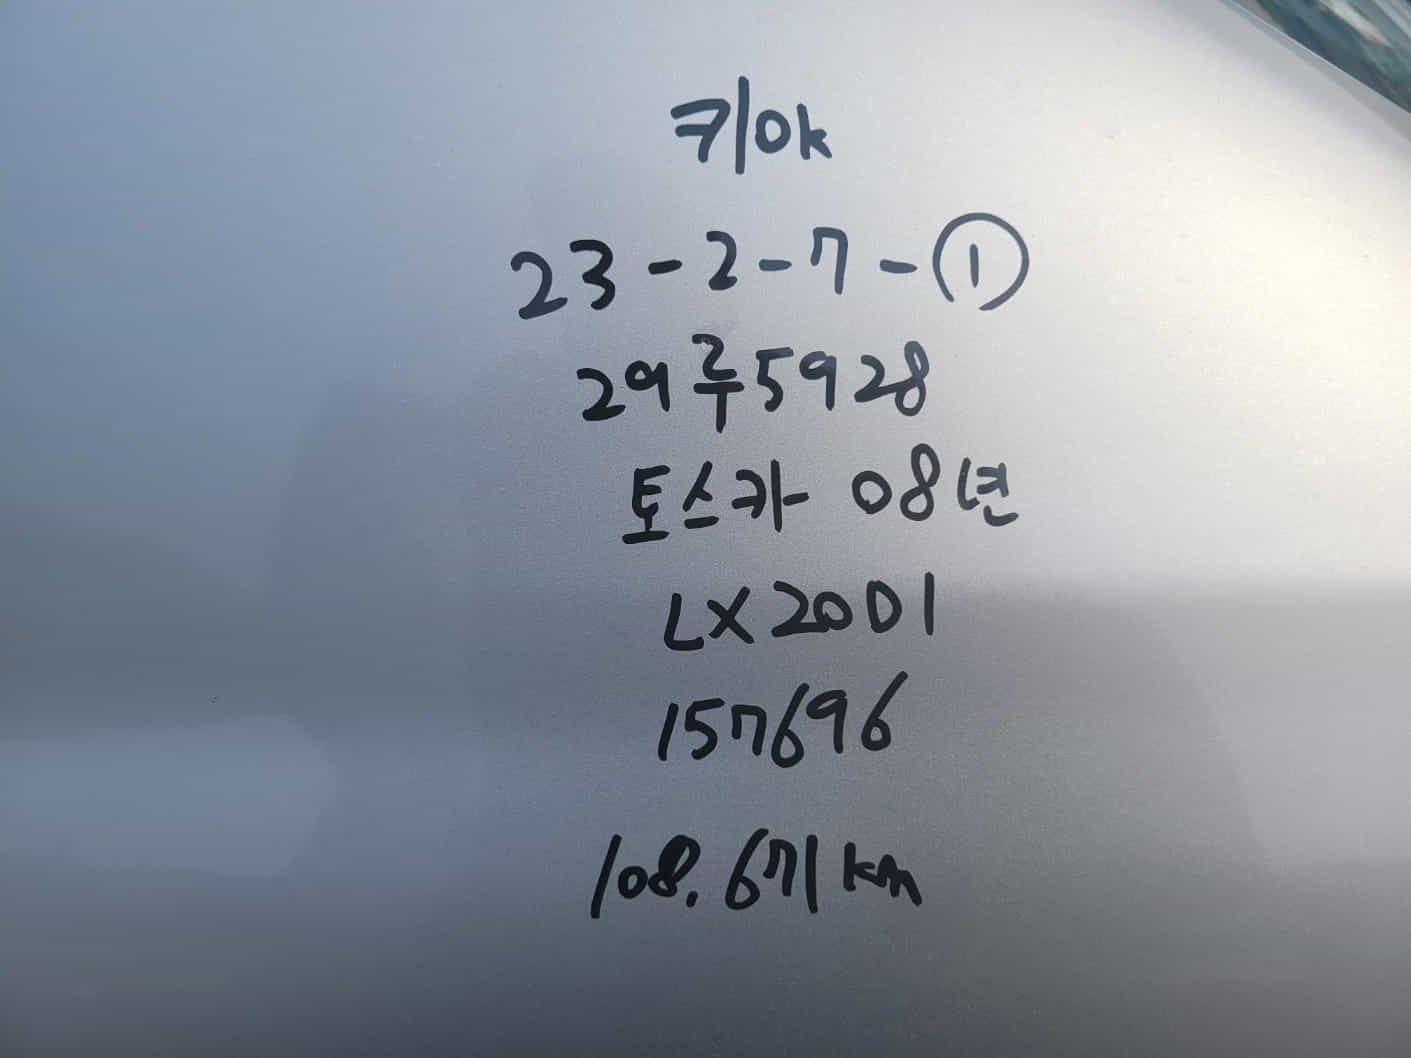 키ok
23-2-7-①
29루5928
토스카 08년
LX20D1
157696
108.671km